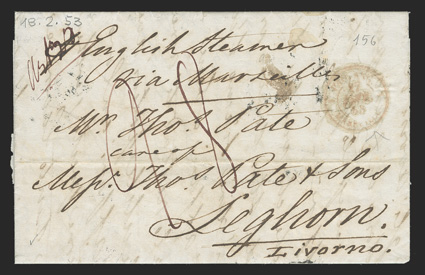 18.2.53
156
English Steamer
via Marseilles
Mr. Thos. Pate
care of
Messrs. Thos. Pate & Sons
Leghorn.
Livorno.